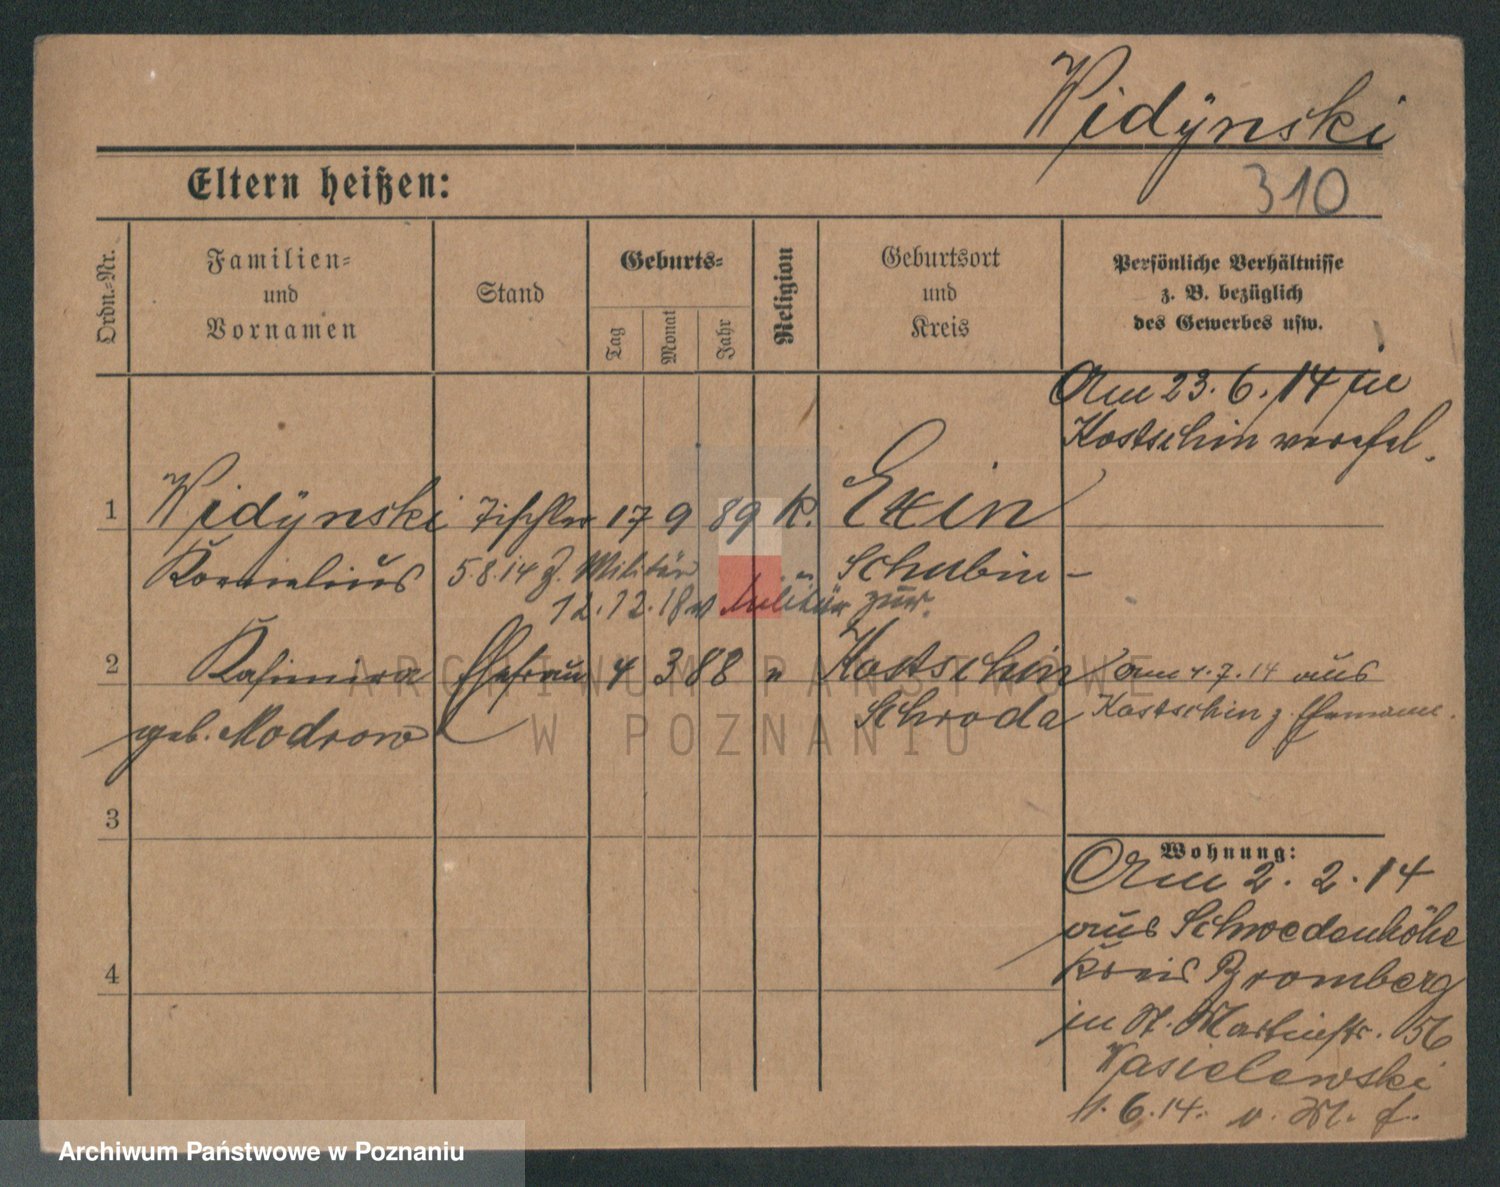 Widÿnski
310
Eltern heißen:
Ordn.-Nr.
Familien-
und
Vornamen
Stand
Geburts-
Tag
Monat
Jahr
Religion
Geburtsort
und
Kreis
Persönliche Verhältnisse
z. B. bezüglich
des Gewerbes usw.
Am 23.6.14 in
Kostschin verehel.
1 Widÿnski Tischler 17 9 89 K. Exin
Kornelius 5.8.14 z. Militär Schubin
12.12.18 v Militär zur.
2 Kasimira Ehefrau 4 3 88 " Kostschin am 4.7.14 aus
geb. Modrow Schroda Kostschin z. Ehemann.
3
4
Wohnung:
Am 2.2.14
aus Schwedenhöhe
Kreis Bromberg
in St. Martinstr. 56
Wasielewski
1.6.14. v. M. f.
ARCHIWUM PAŃSTWOWE
W POZNANIU
Archiwum Państwowe w Poznaniu